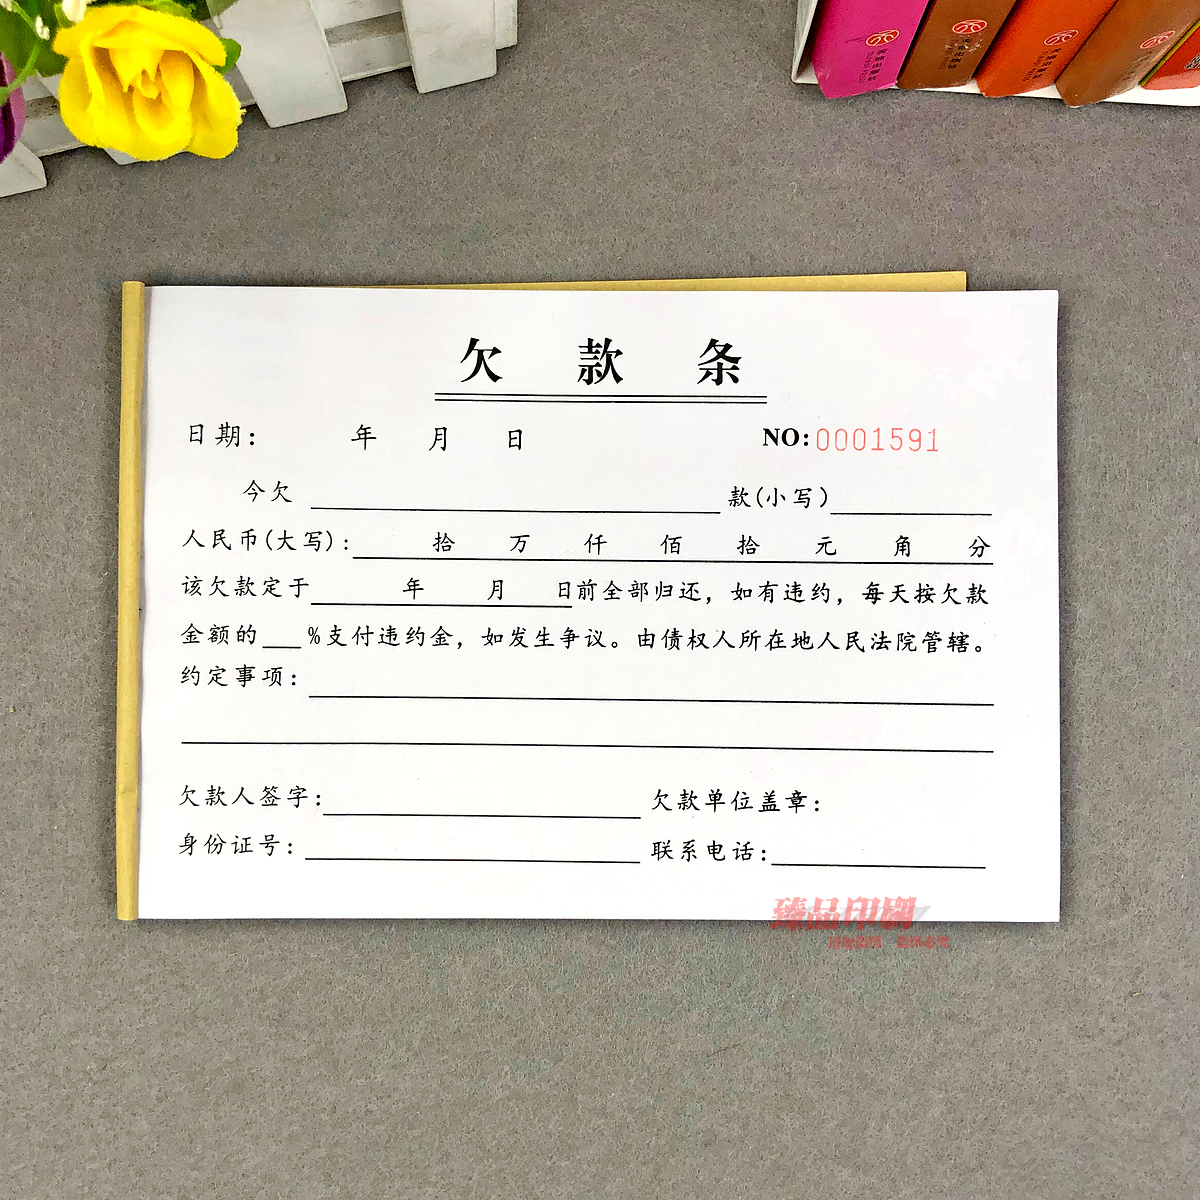 欠款条
日期： 年 月 日 NO:0001591
今欠 款(小写)
人民币(大写): 拾 万 仟 佰 拾 元 角 分
该欠款定于 年 月 日前全部归还，如有违约，每天按欠款
金额的 %支付违约金，如发生争议。由债权人所在地人民法院管辖。
约定事项：
欠款人签字： 欠款单位盖章：
身份证号： 联系电话：
臻品印刷